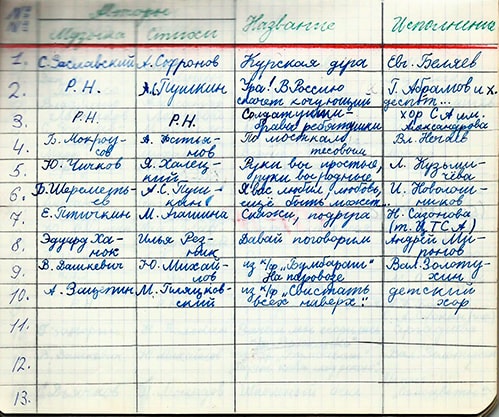 №№ Авторы Название Исполнение
Музыка Стихи
1. С. Заславский А. Софронов Курская дуга Евг. Беляев
2. Р.Н. А. Пушкин Ура! В Россию скачет кочующий деспот... Г. Абрамов и х.
3. Р.Н. Р.Н. Солдатушки - бравы ребятушки хор СА им. Александрова
4. Б. Мокроусов По мосткам тесовым Вл. Нечаев
5. Ю. Чичков Я. Халецкий Руки вы простые, руки вы родные, Л. Кузьмичёва
6. Б. Шереметьев А.С. Пушкин Я вас любил, любовь ещё быть может... И.
7. Е. Птичкин М. Агашина Скажи, подруга Н. Сазонова (т. ЦТСА)
8. Эдуард Ханок Илья Резник Давай поговорим Андрей Миронов
9. В. Дашкевич Ю. Михайлов из к/ф „Бумбараш“ На паровозе Вал. Золотухин
10. А. Зацепин М. из к/ф „Свистать всех наверх“: детский хор
11.
12.
13.